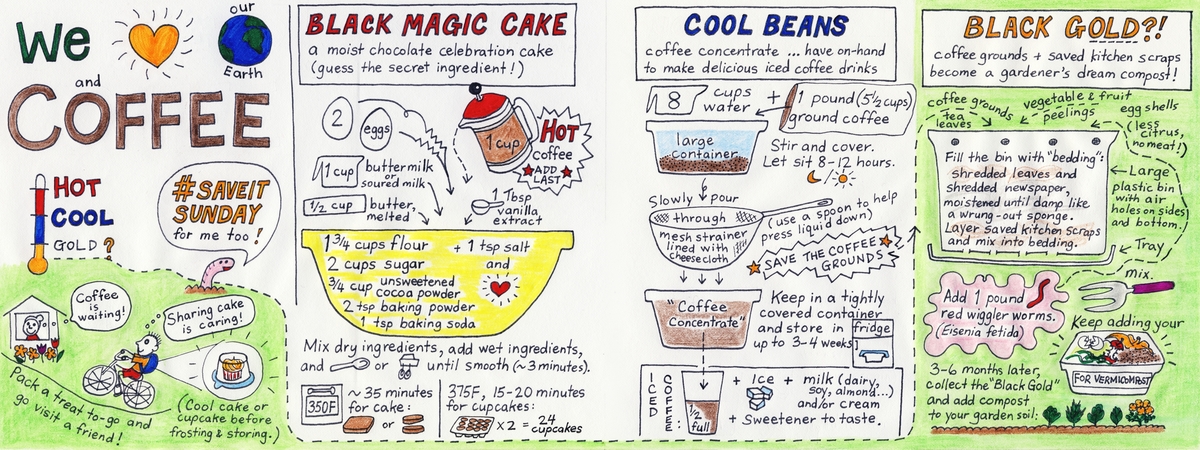 We
our
Earth
and
COFFEE
HOT
COOL
GOLD?
#SAVEIT
SUNDAY
for me too!
Coffee
is
waiting!
Sharing cake
is caring!
Pack a treat to-go and
go visit a friend!
(Cool cake or
cupcake before
frosting & storing.)
BLACK MAGIC CAKE
a moist chocolate celebration cake
(guess the secret ingredient!)
2
eggs
1 cup
buttermilk
or
soured milk
1/2 cup
butter,
melted
1 cup
HOT
coffee
ADD
LAST
1 Tbsp
vanilla
extract
1 3/4 cups flour
+ 1 tsp salt
2 cups sugar
and
3/4 cup unsweetened
cocoa powder
2 tsp baking powder
1 tsp baking soda
Mix dry ingredients, add wet ingredients,
and
or
until smooth (~3 minutes).
350F
~35 minutes
for cake:
or
375F, 15-20 minutes
for cupcakes:
x2 = 24
cupcakes
COOL BEANS
coffee concentrate ... have on-hand
to make delicious iced coffee drinks
8
cups
water
+
1 pound (5 1/2 cups)
ground coffee
large
container
Stir and cover.
Let sit 8-12 hours.
Slowly pour
through
mesh strainer
lined with
cheesecloth
(use a spoon to help
press liquid down)
SAVE THE COFFEE
GROUNDS
"Coffee
Concentrate"
Keep in a tightly
covered container
and store in fridge
up to 3-4 weeks
ICED
COFFEE:
1/2
full
+ Ice
+ milk (dairy,
soy, almond...)
and/or cream
+ Sweetener to taste.
BLACK GOLD?!
coffee grounds + saved kitchen scraps
become a gardener's dream compost!
coffee grounds
tea
leaves
vegetable & fruit
peelings
egg shells
(less
citrus,
no meat!)
Fill the bin with "bedding":
shredded leaves and
shredded newspaper,
moistened until damp like
a wrung-out sponge.
Layer saved kitchen scraps
and mix into bedding.
Large
plastic bin
with air
holes on sides
and bottom.
Tray
mix.
Add 1 pound
red wiggler worms.
(Eisenia fetida)
Keep adding your
FOR VERMICOMPOST
3-6 months later,
collect the "Black Gold"
and add compost
to your garden soil: